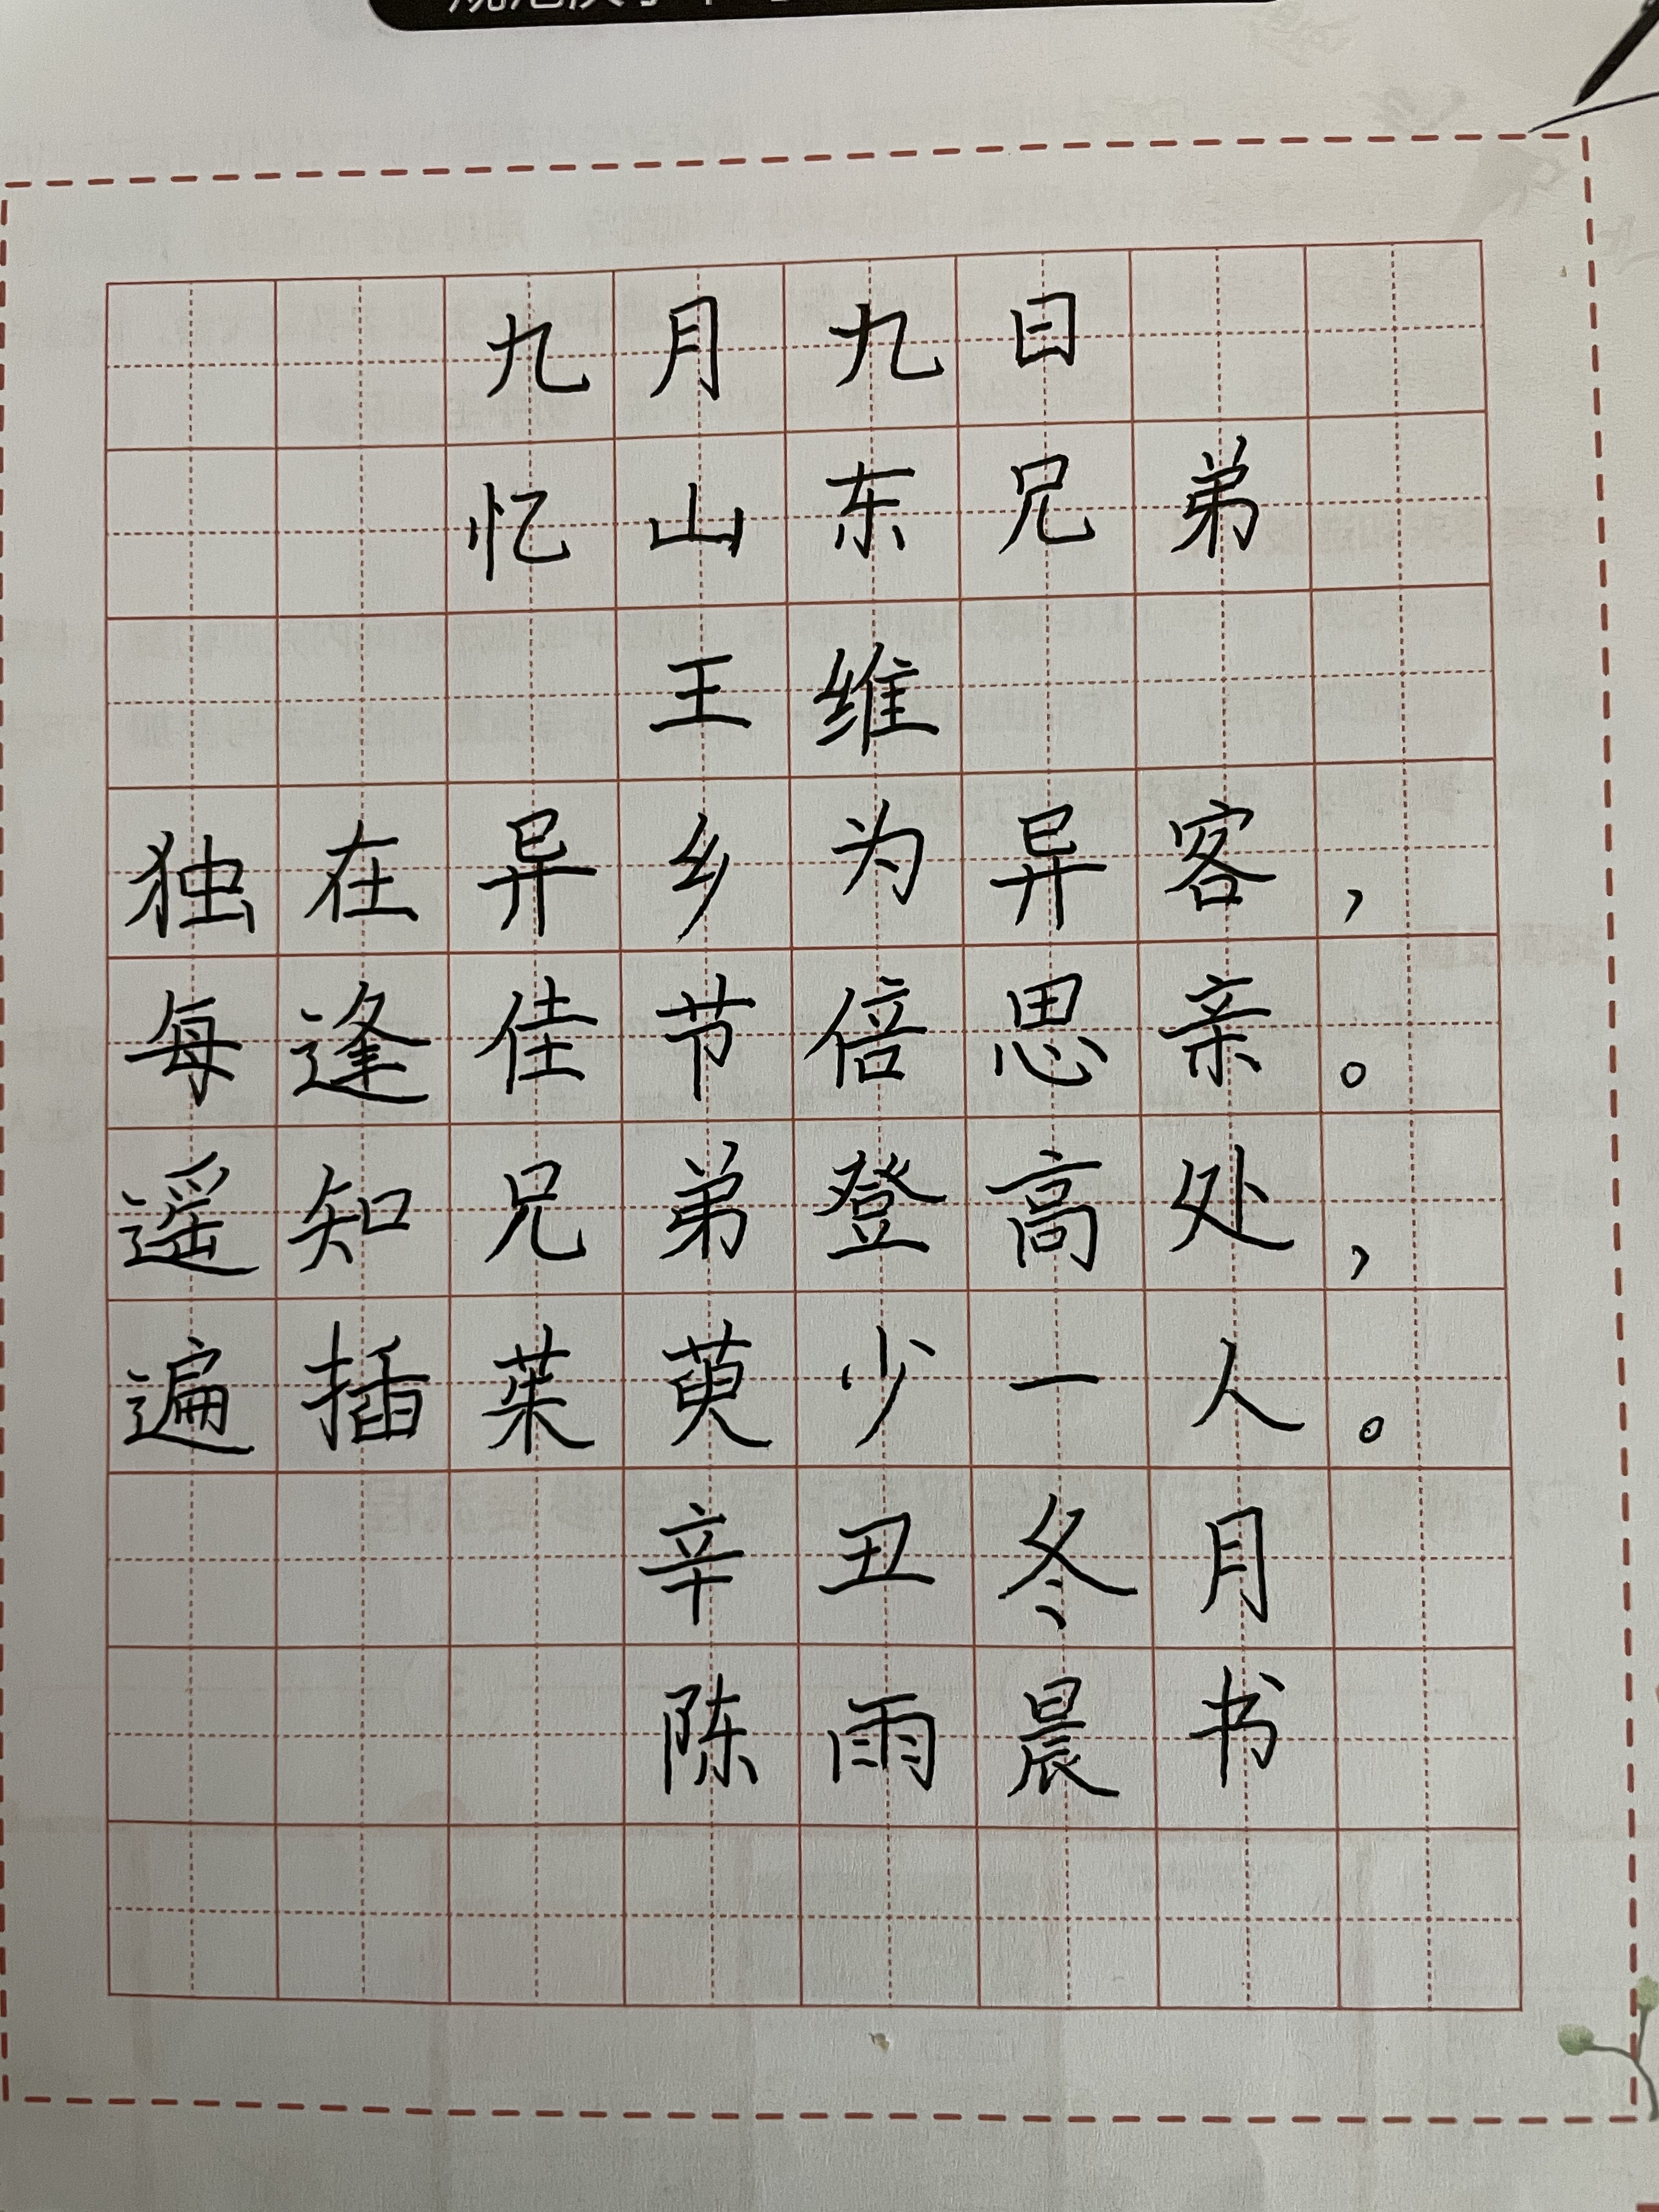 九月九日
忆山东兄弟
王维
独在异乡为异客，
每逢佳节倍思亲。
遥知兄弟登高处，
遍插茱萸少一人。
辛丑冬月
陈雨晨书